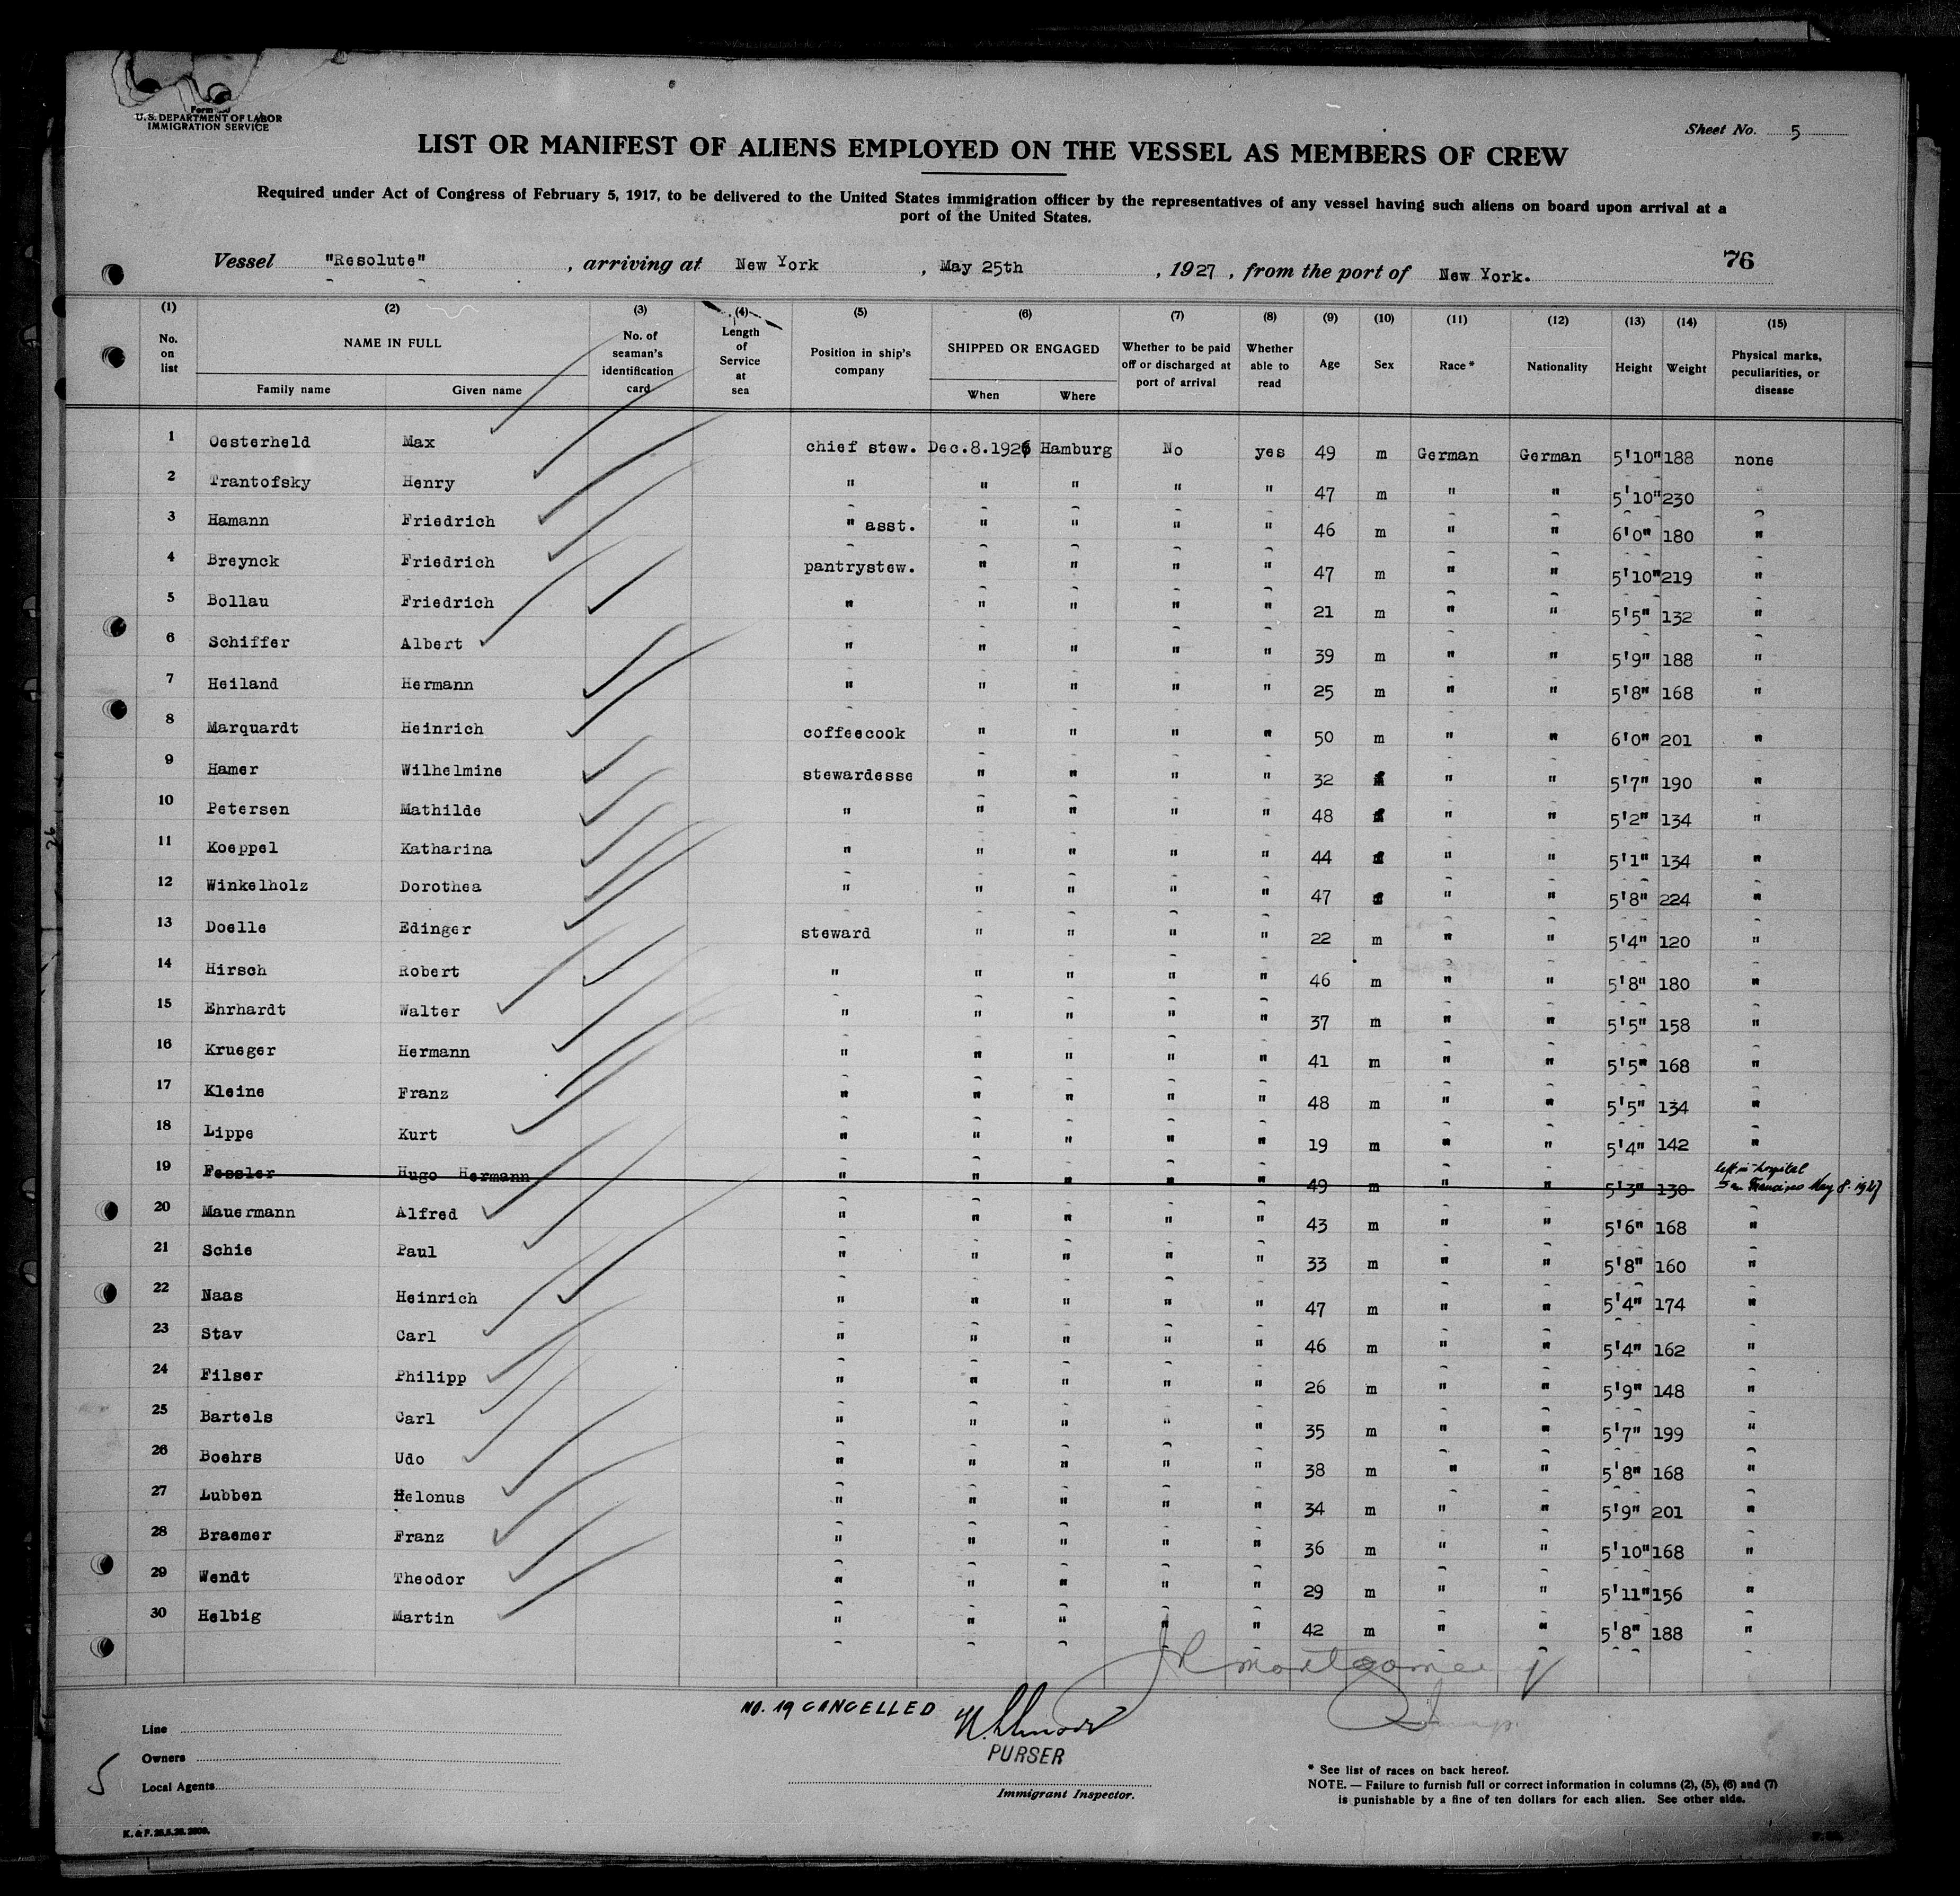 Form
U. S. DEPARTMENT OF LABOR
IMMIGRATION SERVICE
Sheet No. 5
LIST OR MANIFEST OF ALIENS EMPLOYED ON THE VESSEL AS MEMBERS OF CREW
Required under Act of Congress of February 5, 1917, to be delivered to the United States immigration officer by the representatives of any vessel having such aliens on board upon arrival at a
port of the United States.
76
Vessel "Resolute", arriving at New York, May 25th, 1927, from the port of New York.
(1) (2) (3) (4) (5) (6) (7) (8) (9) (10) (11) (12) (13) (14) (15)
No. on list NAME IN FULL Family name Given name No. of seaman's identification card Length of Service at sea Position in ship's company SHIPPED OR ENGAGED When Where Whether to be paid off or discharged at port of arrival Whether able to read Age Sex Race* Nationality Height Weight Physical marks, peculiarities, or disease
1 Oesterheld Max chief stew. Dec.8.1926 Hamburg No yes 49 m German German 5'10" 188 none
2 Trantofsky Henry " " " " " 47 m " " 5'10" 230 "
3 Hamann Friedrich " asst. " " " " 46 m " " 6'0" 180 "
4 Breynck Friedrich pantrystew. " " " " 47 m " " 5'10" 219 "
5 Bollau Friedrich " " " " " 21 m " " 5'5" 132 "
6 Schiffer Albert " " " " " 39 m " " 5'9" 188 "
7 Heiland Hermann " " " " " 25 m " " 5'8" 168 "
8 Marquardt Heinrich coffeecook " " " " 50 m " " 6'0" 201 "
9 Hamer Wilhelmine stewardesse " " " " 32 f " " 5'7" 190 "
10 Petersen Mathilde " " " " " 48 f " " 5'2" 134 "
11 Koeppel Katharina " " " " " 44 f " " 5'1" 134 "
12 Winkelholz Dorothea " " " " " 47 f " " 5'8" 224 "
13 Doelle Edinger steward " " " " 22 m " " 5'4" 120 "
14 Hirsch Robert " " " " " 46 m " " 5'8" 180 "
15 Ehrhardt Walter " " " " " 37 m " " 5'5" 158 "
16 Krueger Hermann " " " " " 41 m " " 5'5" 168 "
17 Kleine Franz " " " " " 48 m " " 5'5" 134 "
18 Lippe Kurt " " " " " 19 m " " 5'4" 142 "
19 Fessler Hugo Hermann " " " " " 49 m " " 5'3" 130 left in hospital San Francisco May 8. 1927
20 Mauermann Alfred " " " " " 43 m " " 5'6" 168 "
21 Schie Paul " " " " " 33 m " " 5'8" 160 "
22 Naas Heinrich " " " " " 47 m " " 5'4" 174 "
23 Stav Carl " " " " " 46 m " " 5'4" 162 "
24 Filser Philipp " " " " " 26 m " " 5'9" 148 "
25 Bartels Carl " " " " " 35 m " " 5'7" 199 "
26 Boehrs Udo " " " " " 38 m " " 5'8" 168 "
27 Lubben Helonus " " " " " 34 m " " 5'9" 201 "
28 Braemer Franz " " " " " 36 m " " 5'10" 168 "
29 Wendt Theodor " " " " " 29 m " " 5'11" 156 "
30 Helbig Martin " " " " " 42 m " " 5'8" 188 "
JR Montgomery
NO. 19 CANCELLED
PURSER
Line
Owners
Local Agents
5
Immigrant Inspector.
* See list of races on back hereof.
NOTE. — Failure to furnish full or correct information in columns (2), (5), (6) and (7)
is punishable by a fine of ten dollars for each alien. See other side.
26